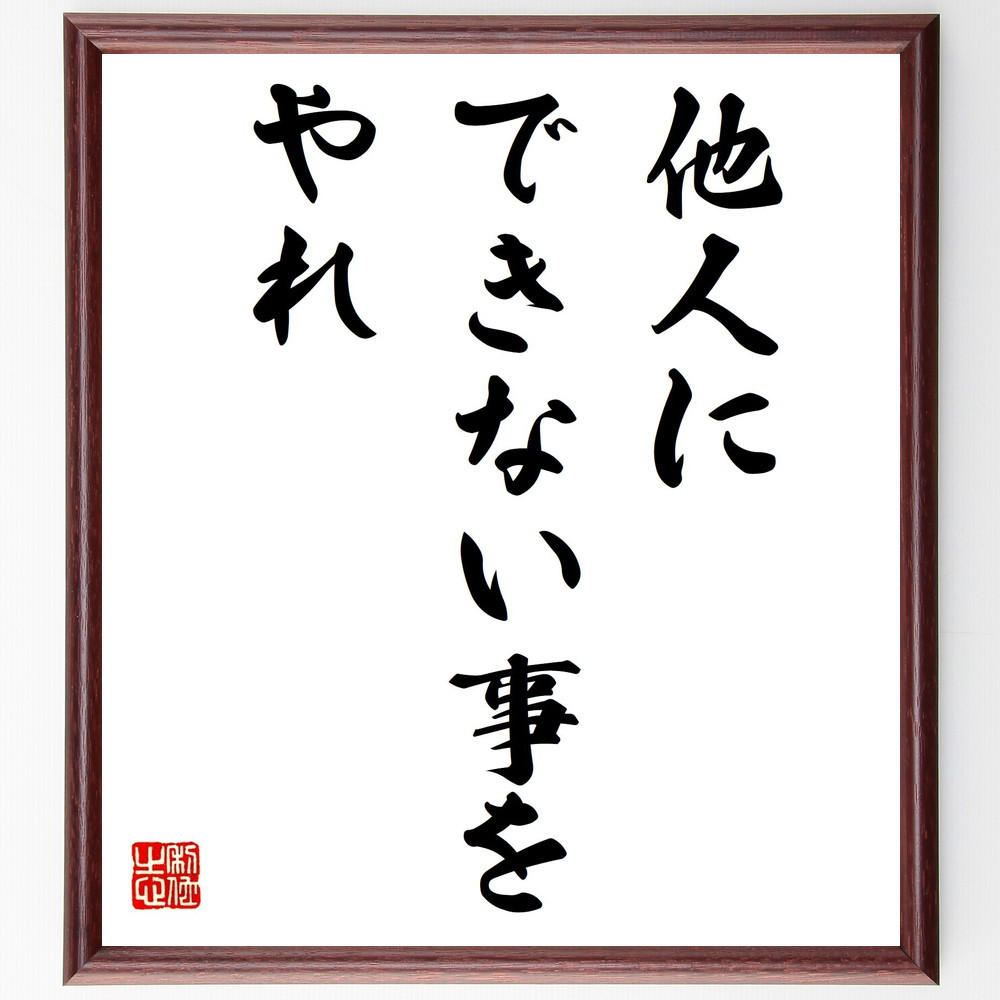 他人に
できない事を
やれ